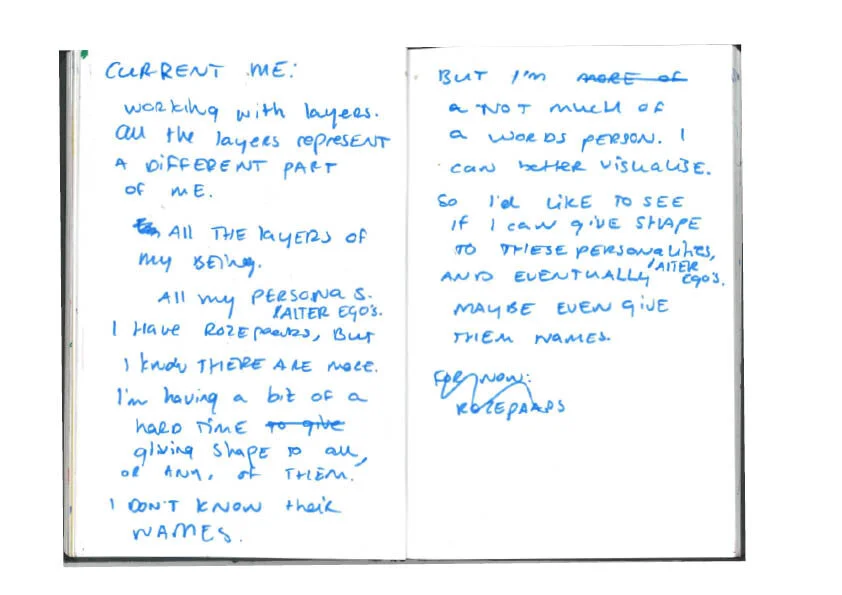 CURRENT ME:
working with layers.
All the layers represENT
A DIFFERENT PART
OF ME.
All THE layERS OF
my BEing.
All my PERSONAS.
/AlTER EGO'S.
I Have ROZEpaars, BuT
I know THERE ARE more.
I'm having a bit of a
HARD TIME to give
giving shape to all,
or ANY, of THEM.
I DON'T KNOW their
NAMES.
BUT I'M MORE OF
a NOT much of
a WORDS PERSON. I
can better visualise.
So I'd LIKE TO SEE
IF I can giVE SHAPE
TO THESE PERSONAlities,
/AlTER
AND EVENTUALLY EGO'S.
MAYBE EVEN GIVE
THEM NAMES.
FOR NOW:
ROZEPAARS